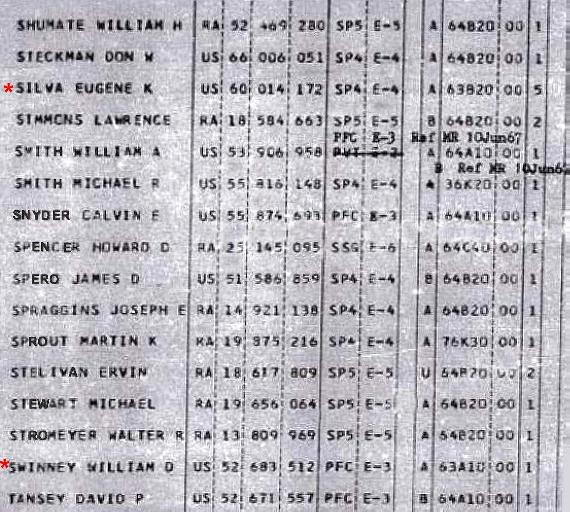 SHUMATE WILLIAM H RA 52 469 280 SP5 E-5 A 64B20 00 1
STECKMAN DON W US 66 006 051 SP4 E-4 A 64B20 00 1
*SILVA EUGENE K US 60 014 172 SP4 E-4 A 63B20 00 5
SIMMONS LAWRENCE RA 18 584 663 SP5 E-5 B 64B20 00 2
PFC E-3 Ref MR 10Jun67
SMITH WILLIAM A US 53 906 958 A 64A10 00 1
B Ref MR 10Jun6
SMITH MICHAEL R US 55 816 148 SP4 E-4 A 36K20 00 1
SNYDER CALVIN E US 55 874 693 PFC E-3 A 64A10 00 1
SPENCER HOWARD D RA 25 145 095 SSG E-6 A 64C40 00 1
SPERO JAMES D US 51 586 859 SP4 E-4 B 64B20 00 1
SPRAGGINS JOSEPH E RA 14 921 138 SP4 E-4 A 64B20 00 1
SPROUT MARTIN K RA 19 875 216 SP4 E-4 A 76K30 00 1
STELIVAN ERVIN RA 18 617 809 SP5 E-5 U 64B20 00 2
STEWART MICHAEL RA 19 656 064 SP5 E-5 A 64B20 00 1
STROMEYER WALTER R RA 13 809 969 SP5 E-5 A 64B20 00 1
*SWINNEY WILLIAM D US 52 683 512 PFC E-3 A 63A10 00 1
TANSEY DAVID P US 52 671 557 PFC E-3 B 64A10 00 1